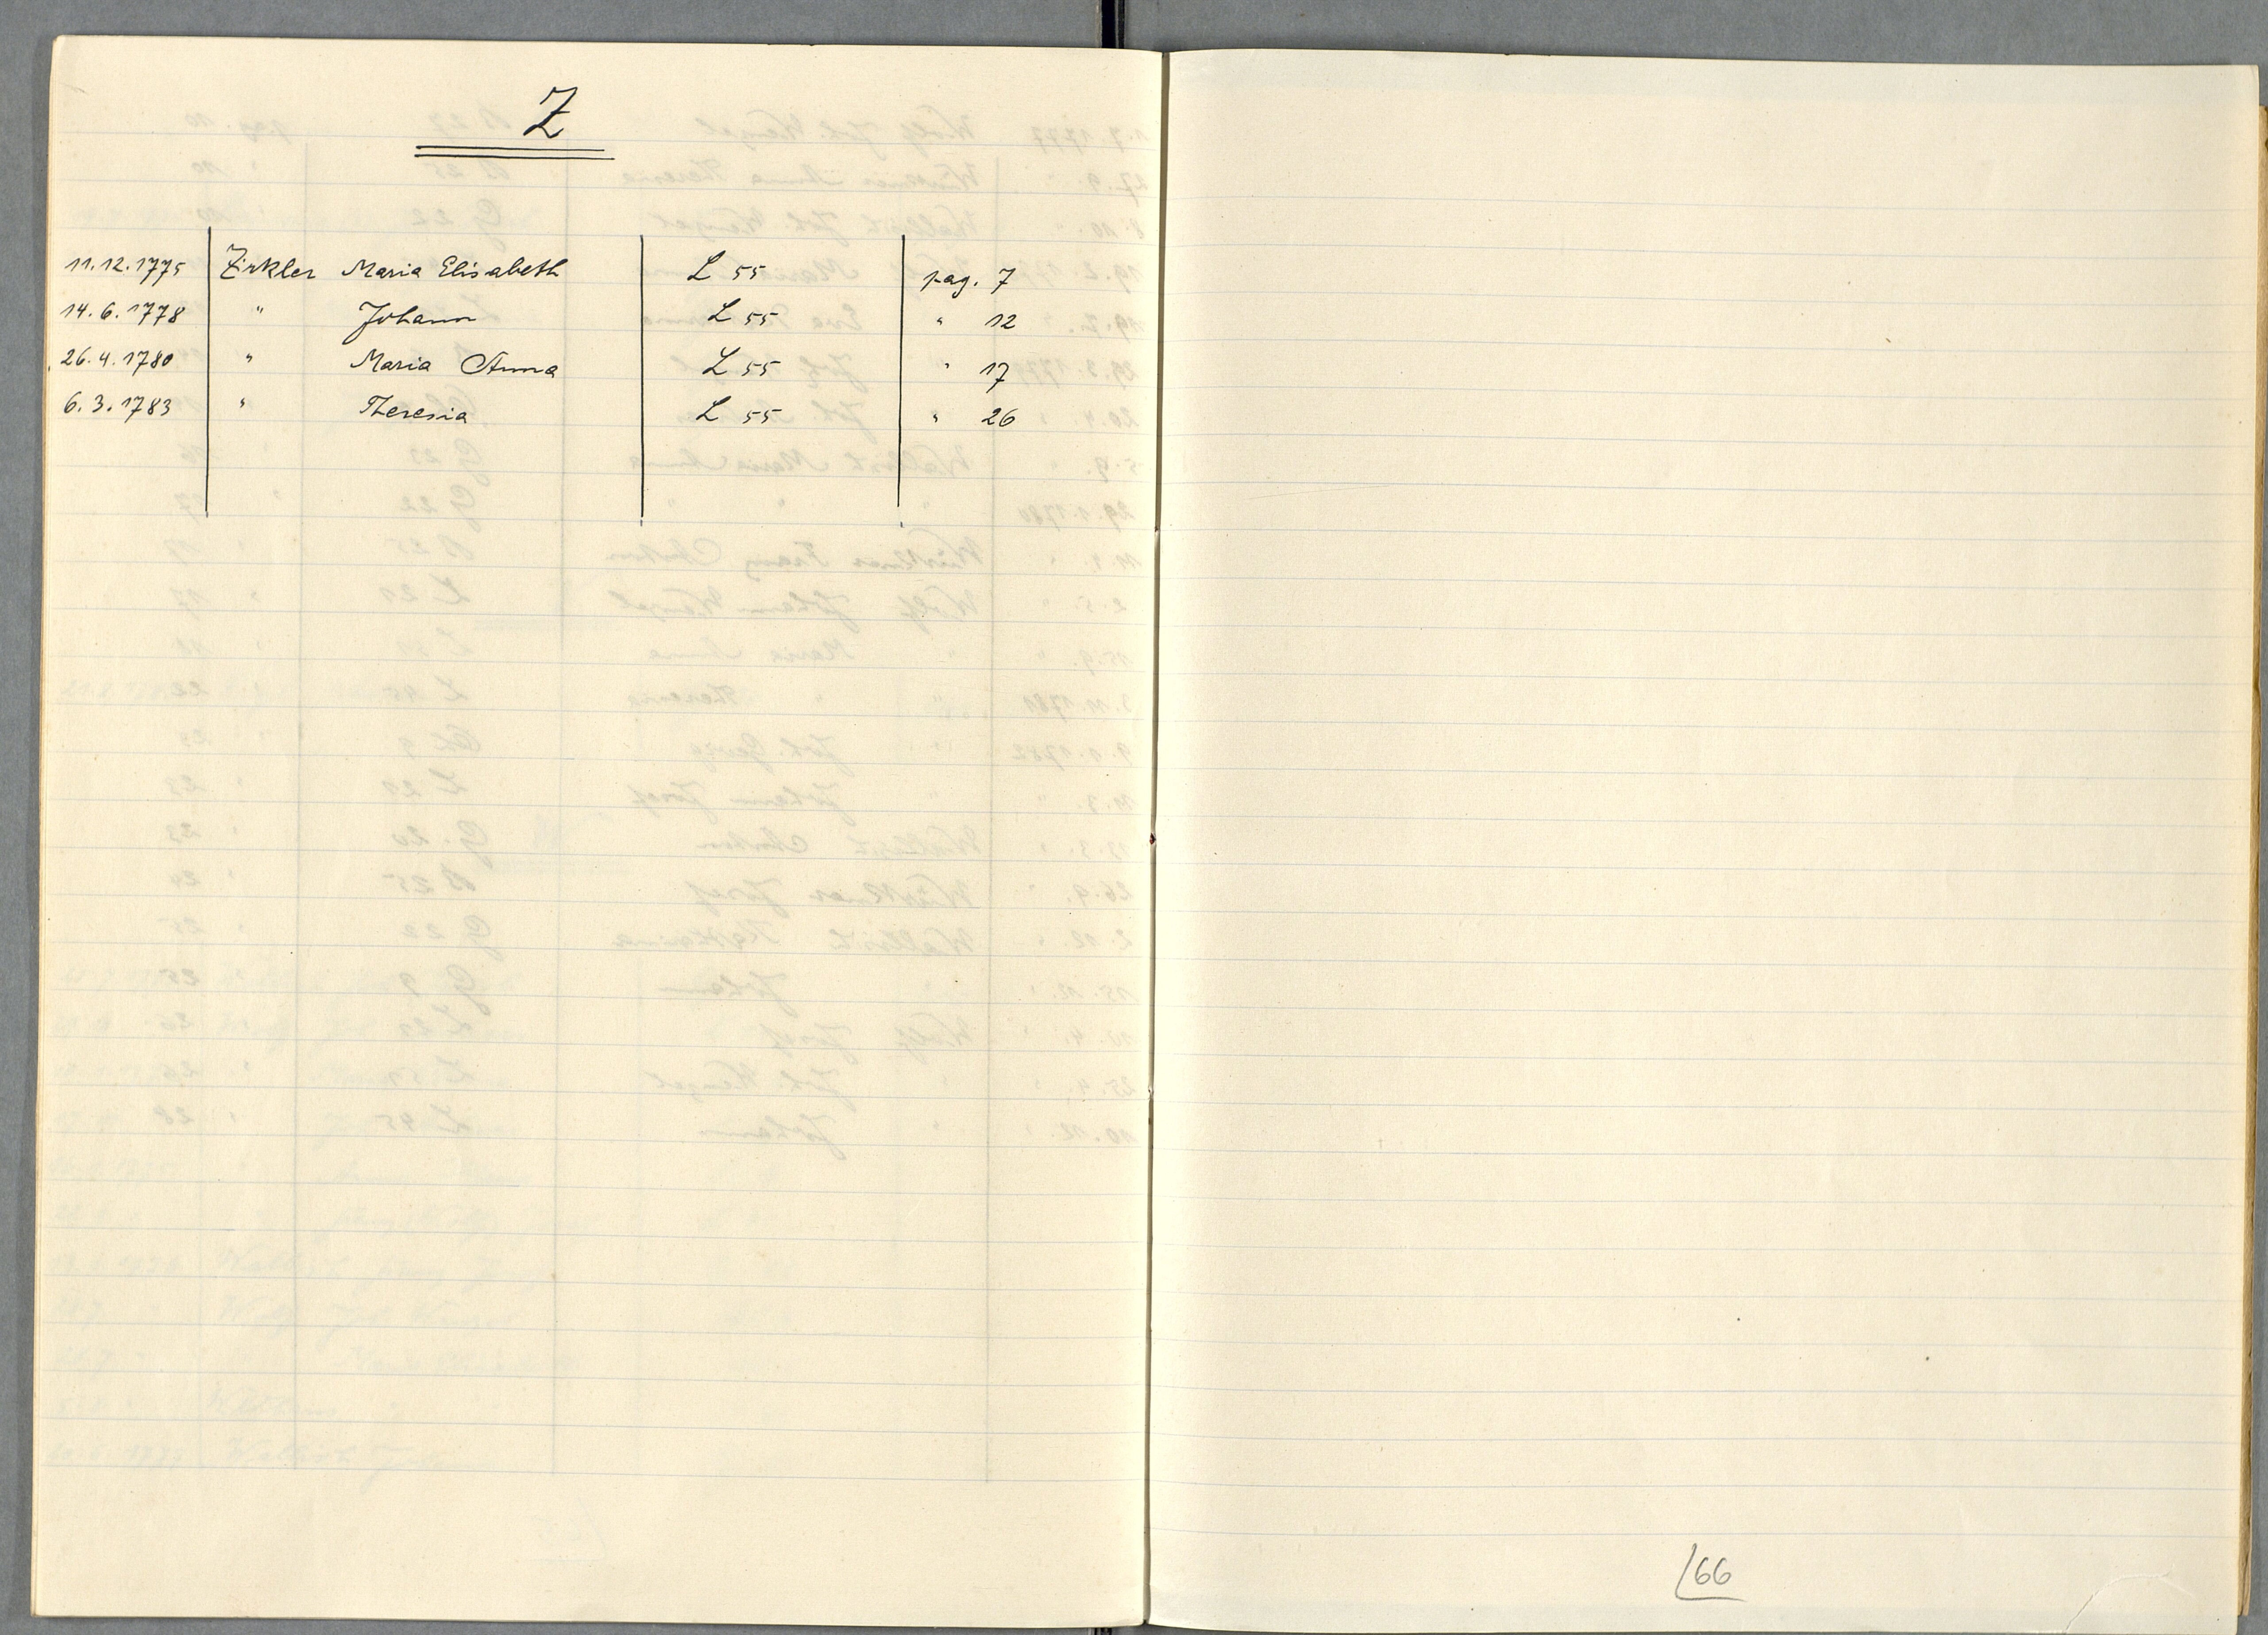 Z
11.12.1775 Zirkler Maria Elisabeth L 55 pag. 7
14.6.1778 " Johann L 55 " 12
26.4.1780 " Maria Anna L 55 " 17
6.3.1783 " Theresia L 55 " 26
66